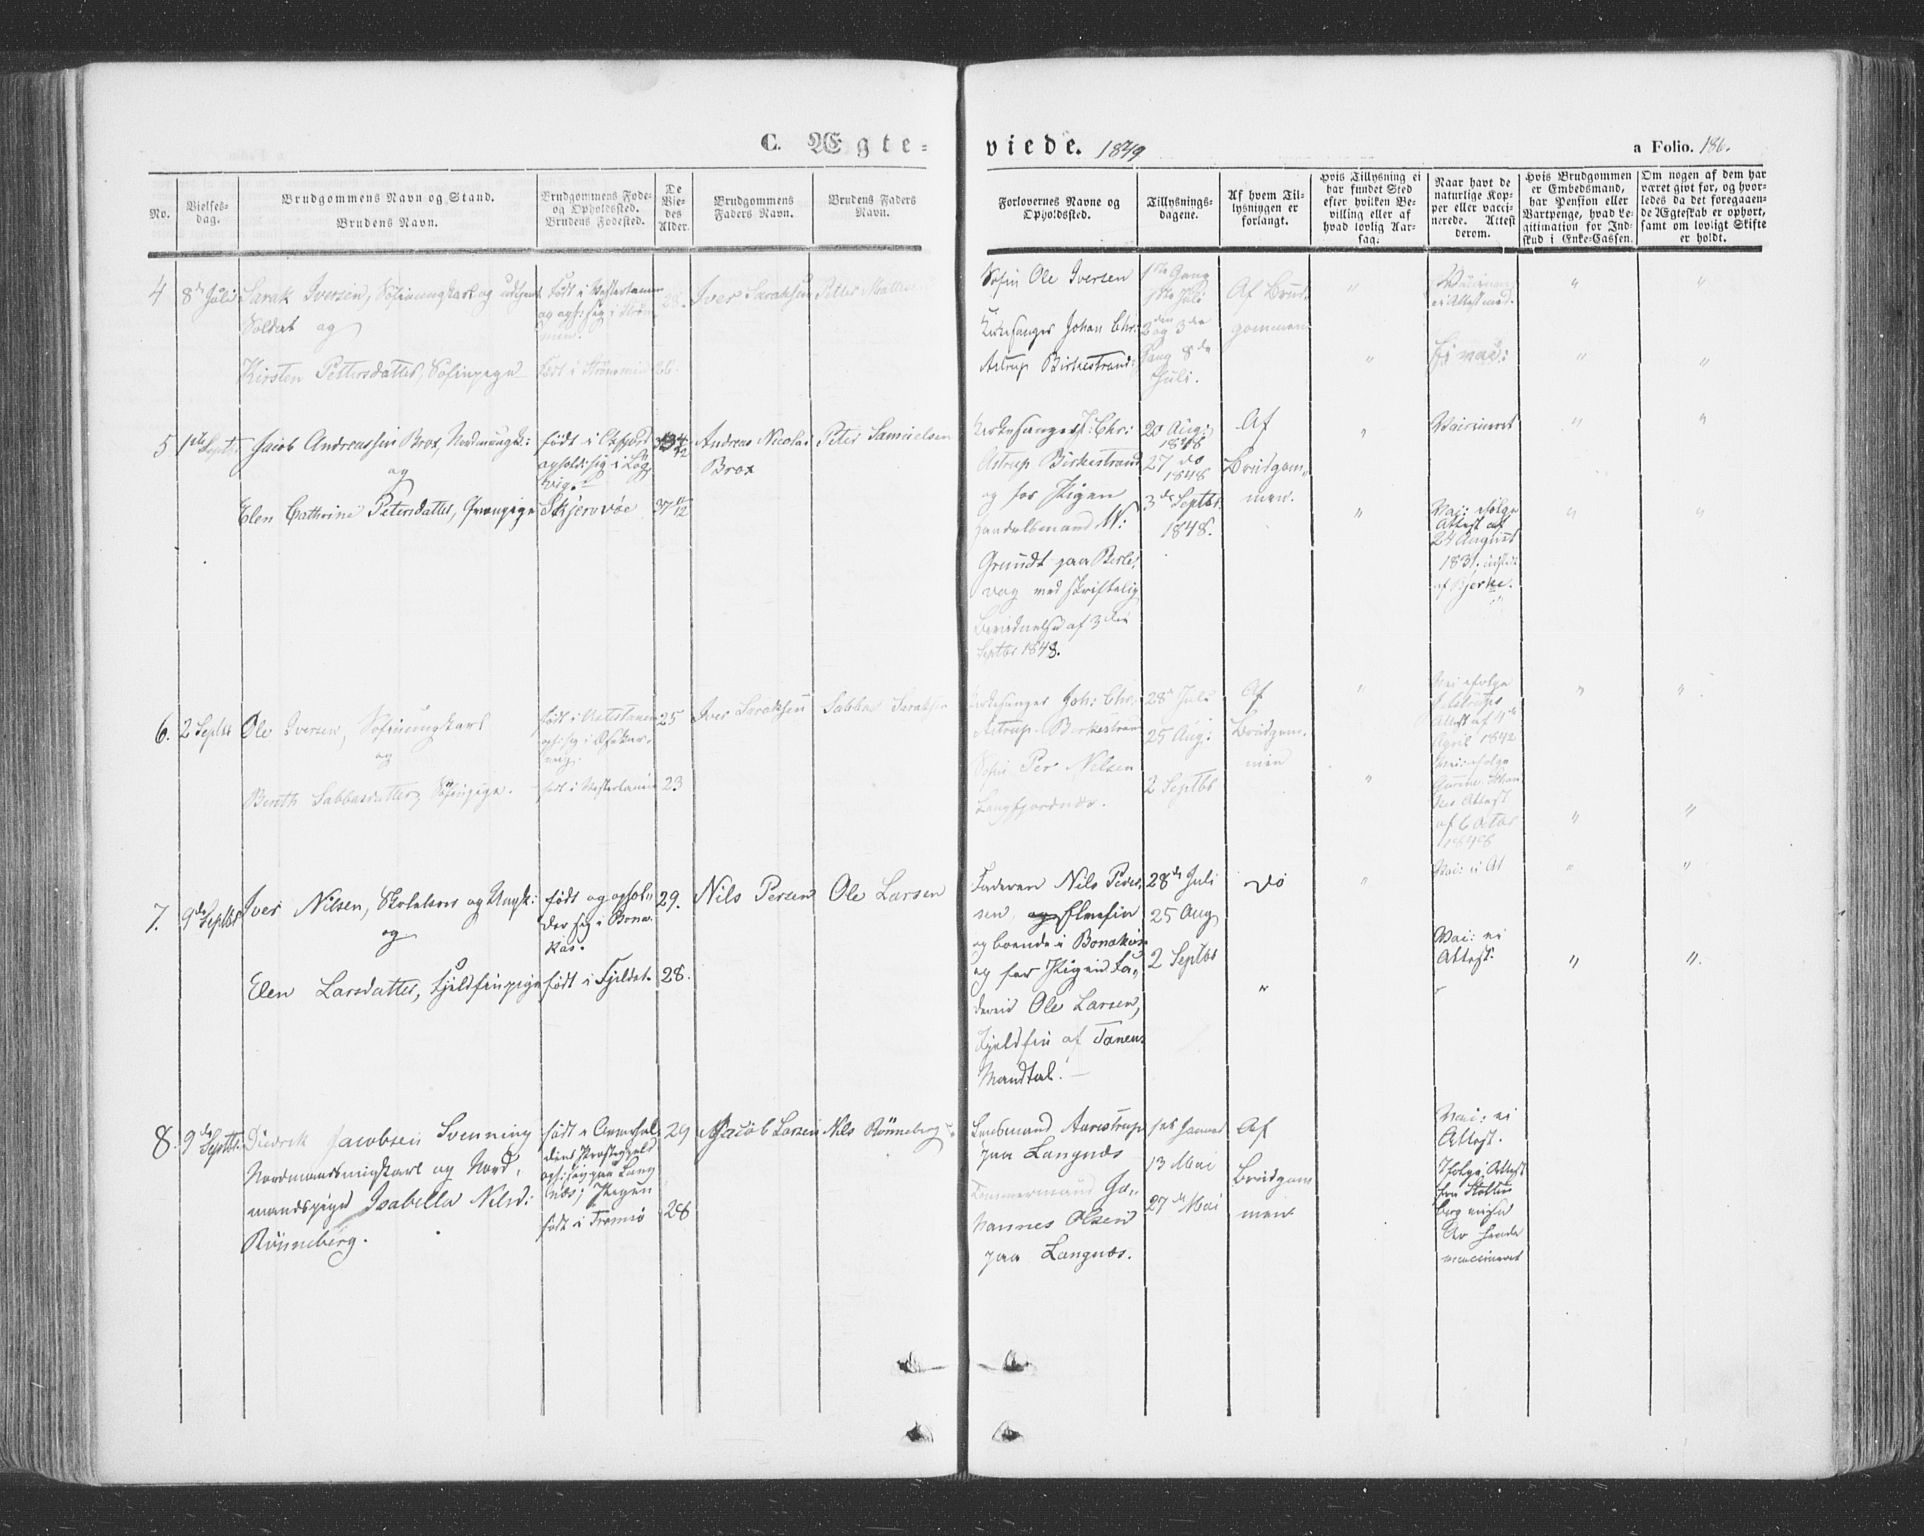 C. Ægte-
viede. 1849
a Folio. 186.
No.
Vielses-
dag.
Brudgommens Navn og Stand.
Brudens Navn.
Brudgommens Føde-
og Opholdssted.
Brudens Fødested.
De
Vie-
des
Alder.
Brudgommens
Faders Navn.
Brudens Faders
Navn.
Forlovernes Navne og
Opholdssted.
Tillysnings-
dagene.
Af hvem Til-
lysningen er
forlangt.
Hvis Tillysning ei
har fundet Sted
efter hvilken Be-
villing eller af
hvad lovlig Aar-
sag.
Naar havt de
naturlige Kop-
per eller vacci-
nerede. Attest
derom.
Hvis Brudgommen
er Embedsmand,
har Pension eller
Vartpenge, hvad Le-
gitimation for Ind-
skud i Enke-Cassen.
Om nogen af dem har
været givt før, og hvor-
ledes da det foregaaen-
de Ægteskab er ophørt,
samt om lovligt Skifte
er holdt.
4
8de Juli
Sarak Iversen, Søfinungkarl og
Soldat og
Kirsten Pettersdatter, Søfinpige
født i
28.
26.
Iver Saraksen
Petter
Søfin Ole Iversen
Kirkesanger Johan Chr:
Astrup Birkestrand
1ste Gang
1ste Juli
2den og 3die
Gang 8de
Juli.
Af Brud-
gommen
" " "
Ei vac:
" " "
5
1ste Septbr
Jacob Andreassen Brox, Nordmungk:
og
Elen Cathrine Petersdatter,
født i
opholdr sig i Løg
vig.
Skjervøe
37 11/12
Andreas Nicolai
Brox
Peter Samuelsen
Kirkesanger J: Chr:
Astrup Birkestrand
og for Pigen
Handelsmand W:
Grundt paa Berle-
vag med skriftelig
af 3die
Septbr 1848.
20 Aug:
1848
27 do
1848
3de Septbr
1848.
Af
Brudgom-
men.
Vaccineret
" "
" Vac: ifølge
Attest af
24 August
1831,
af Bjerke.
" "
6.
2 Septbr
Ole Iversen, Søfinungkarl
og
Bereth Sabbasdatter, Søfinpige.
født i Vestertanen
født i Vestertanen
25
23
Iver Saraksen
Sabbas Saraksen
Kirkesanger Joh: Chr:
Astrup. Birkestrand
Søfin Per Nilsen
Langfjordnæs.
28de Juli
25 Aug:
2 Septbr
Af
Brudgom-
men
"
Vac: ifølge
Attest af 4de
April 1842
" "
"
Vac: ifølge
Attest
af 6
1848
" "
7.
9de
Septbr
Iver Nilsen, Skolelærer og Ungk:
og
Elen Larsdatter, Fjeldfinpige
født og ophol-
der sig i Bona-
kas.
født i Fjeldet.
29.
28.
Nils Persen
Ole Larsen
Faderen Nils Peder-
sen, Elvefin
og boende i Bonakas
og for Pigen Fa-
deren Ole Larsen,
Fjeldfin af Tanens
Mandtal.
28de Juli
25 Aug
2 Septbr
do
"
"
Vac: ei At
" "
Vac: ei
Attest.
" ".
8.
9de
Septbr.
Diedrik Jacobsen Svenning
Nordmandsungkarl og Nord-
mandspige Isabella Nilsd:
Rønneberg.
født i
dens Præstegjeld
op: sig paa Lang
næs; Pigen
født i Tromsø
29
28
Jacob Larsen
Nils Rønneberg
Lensmand Aarestrup
paa Langnæs
Tømmermand Jo-
hannes Olsen
paa Langnæs.
13 Mai
27de Mai
Af
Brudgom
men
Vac: ei
Attest.
Ifølge Attest
fra Stolten
berg
hende
vaccineret